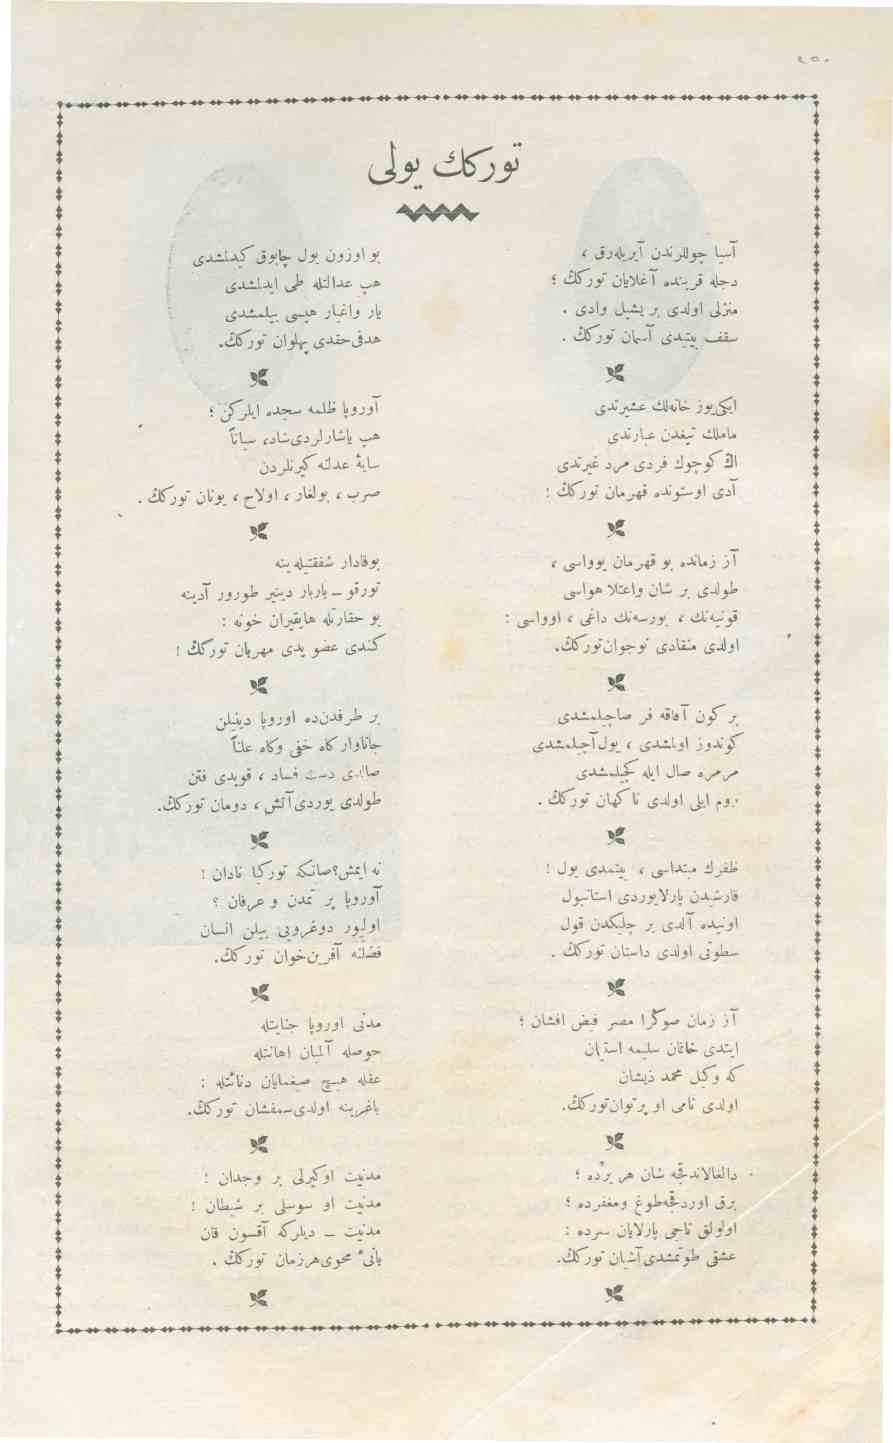 ٤٥٠
تورکك یولی
آسیا چوللرندن آیریله‌رق ،
دجله قربنده آغلایان تورکك ؛
منزلی اولدی بر یشیل وادی .
سقف بیتیدی آسمان تورکك .
ایکی‌یوز خانه‌لك عشیرتدی
ماملك تیغدن عبارتدی
اڭ کوچوك فردی مرد غیرتدی
آدی اوستونده قهرمان تورکك !
آز زمانده بو قهرمان یوواسی ،
طولدی بر شان واعتلا هواسی
قونیه‌نك ، بورسه‌نك داغی ، اوواسی :
اولدی منقادی نوجوان تورکك.
بر کون آفاقه فر صاچیلمشدی
کوندوز اولمشدی ، یول آچیلمشدی
مرمره صال ایله کچیلمشدی
روم ایلی اولدی ناکهان تورکك .
ظفرك مبتداسی ، بیتمدی یول !
قارشیدن پارلایوردی استانبول
اونیده آلدی بر چلیکدن قول
سطوتی اولدی داستان تورکك .
آز زمان صوکرا مصر فیض افشان ؛
ایتدی خاقان سلیمه استیان
که وکیل محمد ذیشان
اولدی نامی او پرتوان تورکك.
دالغالاندقجه شان هر یرده ؛
برق اوردقجه طوغ ومغفرده ؛
اولولق تاجی پارلایان سرده :
عشقی طوتمشدی آشیان تورکك.
بو اوزون یول چابوق کیدلمشدی
هپ عدالتله طی ایدلمشدی
یار واغیار هپسی بیلمشدی
هدفی حقدی پهلوان تورکك.
آوروپا ظلمه سجده ایلرکن ؛
هپ یاشارلردی شاد، سیاناً
سایهٔ عدلنه کیرنلردن
صرب ، بولغار ، اولاح ، یونان تورکك .
بوقادار شفقتیله ینه
تورقو ــ باربار دینیر طورور آدینه
بو حقارتله هایقیران خونه :
کندی عضو یدی مهربان تورکك !
بر طرفدن‌ده اوروپا دینیلن
جاناوار کاه خفی وکاه علناً
صالدی دست فساد ، قویدی فتن
طولدی یوردی آتش ، دومان تورکك.
نه ایمش؟ صانکه تورکیا نادان !
آوروپا پر تمدن و عرفان ؟
اولیور دوغرویی بیلن انسان
فضلنه آفرین‌خوان تورکك.
مدنی اوروپا جنایتله
حوصله آلمیان اهانتله
عقله هیچ صیغمایان دنائتله :
باغرینه اولدی سمفشان تورکك.
مدنیت اوکیرلی بر وجدان !
مدنیت او سوسلی بر شیطان !
مدنیت ــ دیلرکه آقسون قان
یانیٔ محوی هرزمان تورکك .